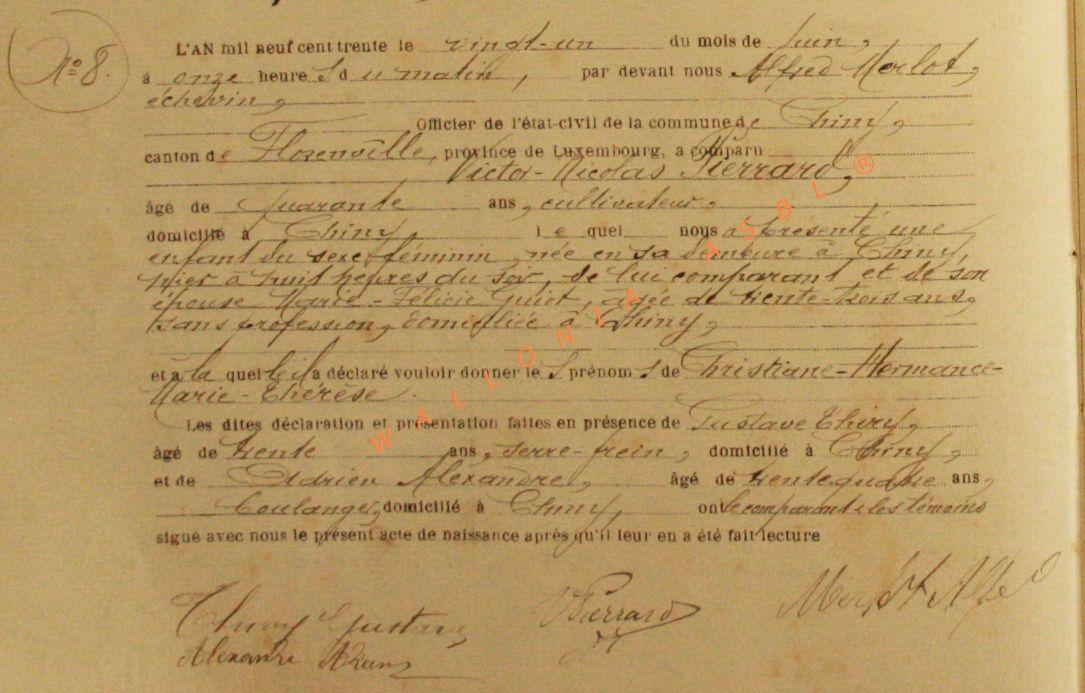 N° 8.
L'AN mil neuf cent trente le vingt-un du mois de juin,
à onze heure s du matin, par devant nous Alfred Merlot,
échevin,
Officier de l'état-civil de la commune de Chiny,
canton de Florenville, province de Luxembourg, a comparu
Victor-Nicolas Pierrard,
âgé de quarante ans, cultivateur,
domicilié à Chiny, le quel nous a présenté une
enfant du sexe féminin, née en sa demeure à Chiny,
hier à huit heures du soir, de lui comparant et de son
épouse Marie-Félicie Guiot, âgée de trente-trois ans,
sans profession, domiciliée à Chiny,
et à la quelle il a déclaré vouloir donner le s prénom s de Christiane-Hermance-
Marie-Thérèse.
Les dites déclaration et présentation faites en présence de Gustave Thiry,
âgé de trente ans, serre-frein, domicilié à Chiny,
et de Adrien Alexandre, âgé de trente quatre ans,
boulanger, domicilié à Chiny, ont le comparant & les témoins
signé avec nous le présent acte de naissance après qu'il leur en a été fait lecture
Thiry Gustave
VPierrard
Merlot Alfred
Alexandre Adrien
WALLONIA ASBL ®